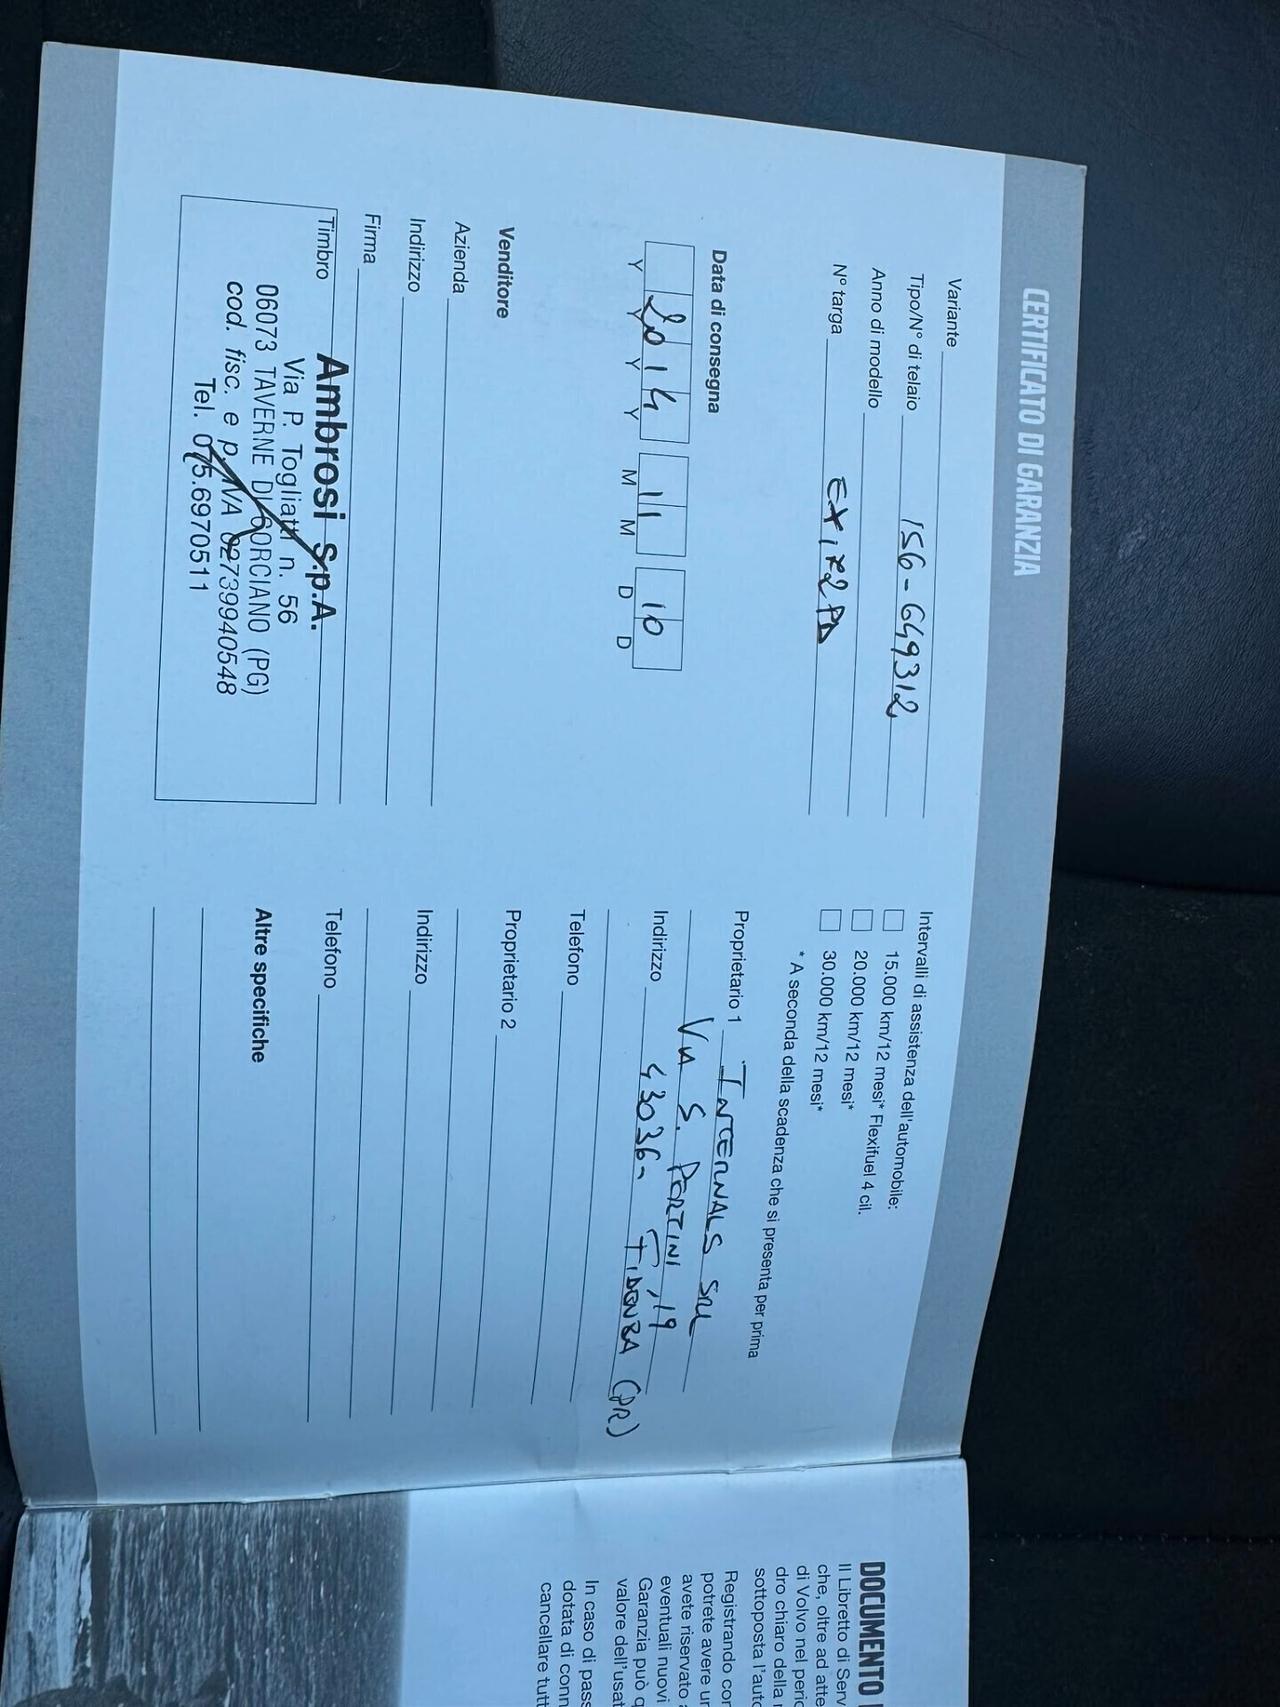 CERTIFICATO DI GARANZIA
Variante
Tipo/N° di telaio 156-649312
Anno di modello
N° targa EX172PD
Data di consegna
2014 11 10
Y Y Y Y M M D D
Venditore
Azienda
Indirizzo
Firma
Timbro
Ambrosi S.p.A.
Via P. Togliatti n. 56
06073 TAVERNE DI CORCIANO (PG)
cod. fisc. e p. IVA 02739940548
Tel. 075.6970511
Intervalli di assistenza dell'automobile:
15.000 km/12 mesi* Flexifuel 4 cil.
20.000 km/12 mesi*
30.000 km/12 mesi*
* A seconda della scadenza che si presenta per prima
Proprietario 1 INTERNALS SRL
VIA S. PERTINI, 19
Indirizzo 43036 - FIDENZA (PR)
Telefono
Proprietario 2
Indirizzo
Telefono
Altre specifiche
DOCUMENTO
Il Libretto di Serv
che, oltre ad atte
di Volvo nel peri
dro chiaro della
sottoposta l'auto
Registrando cor
potrete avere un
avete riservato
eventuali nuovi
Garanzia può
valore dell'usat
In caso di pass
dotata di conn
cancellare tutt